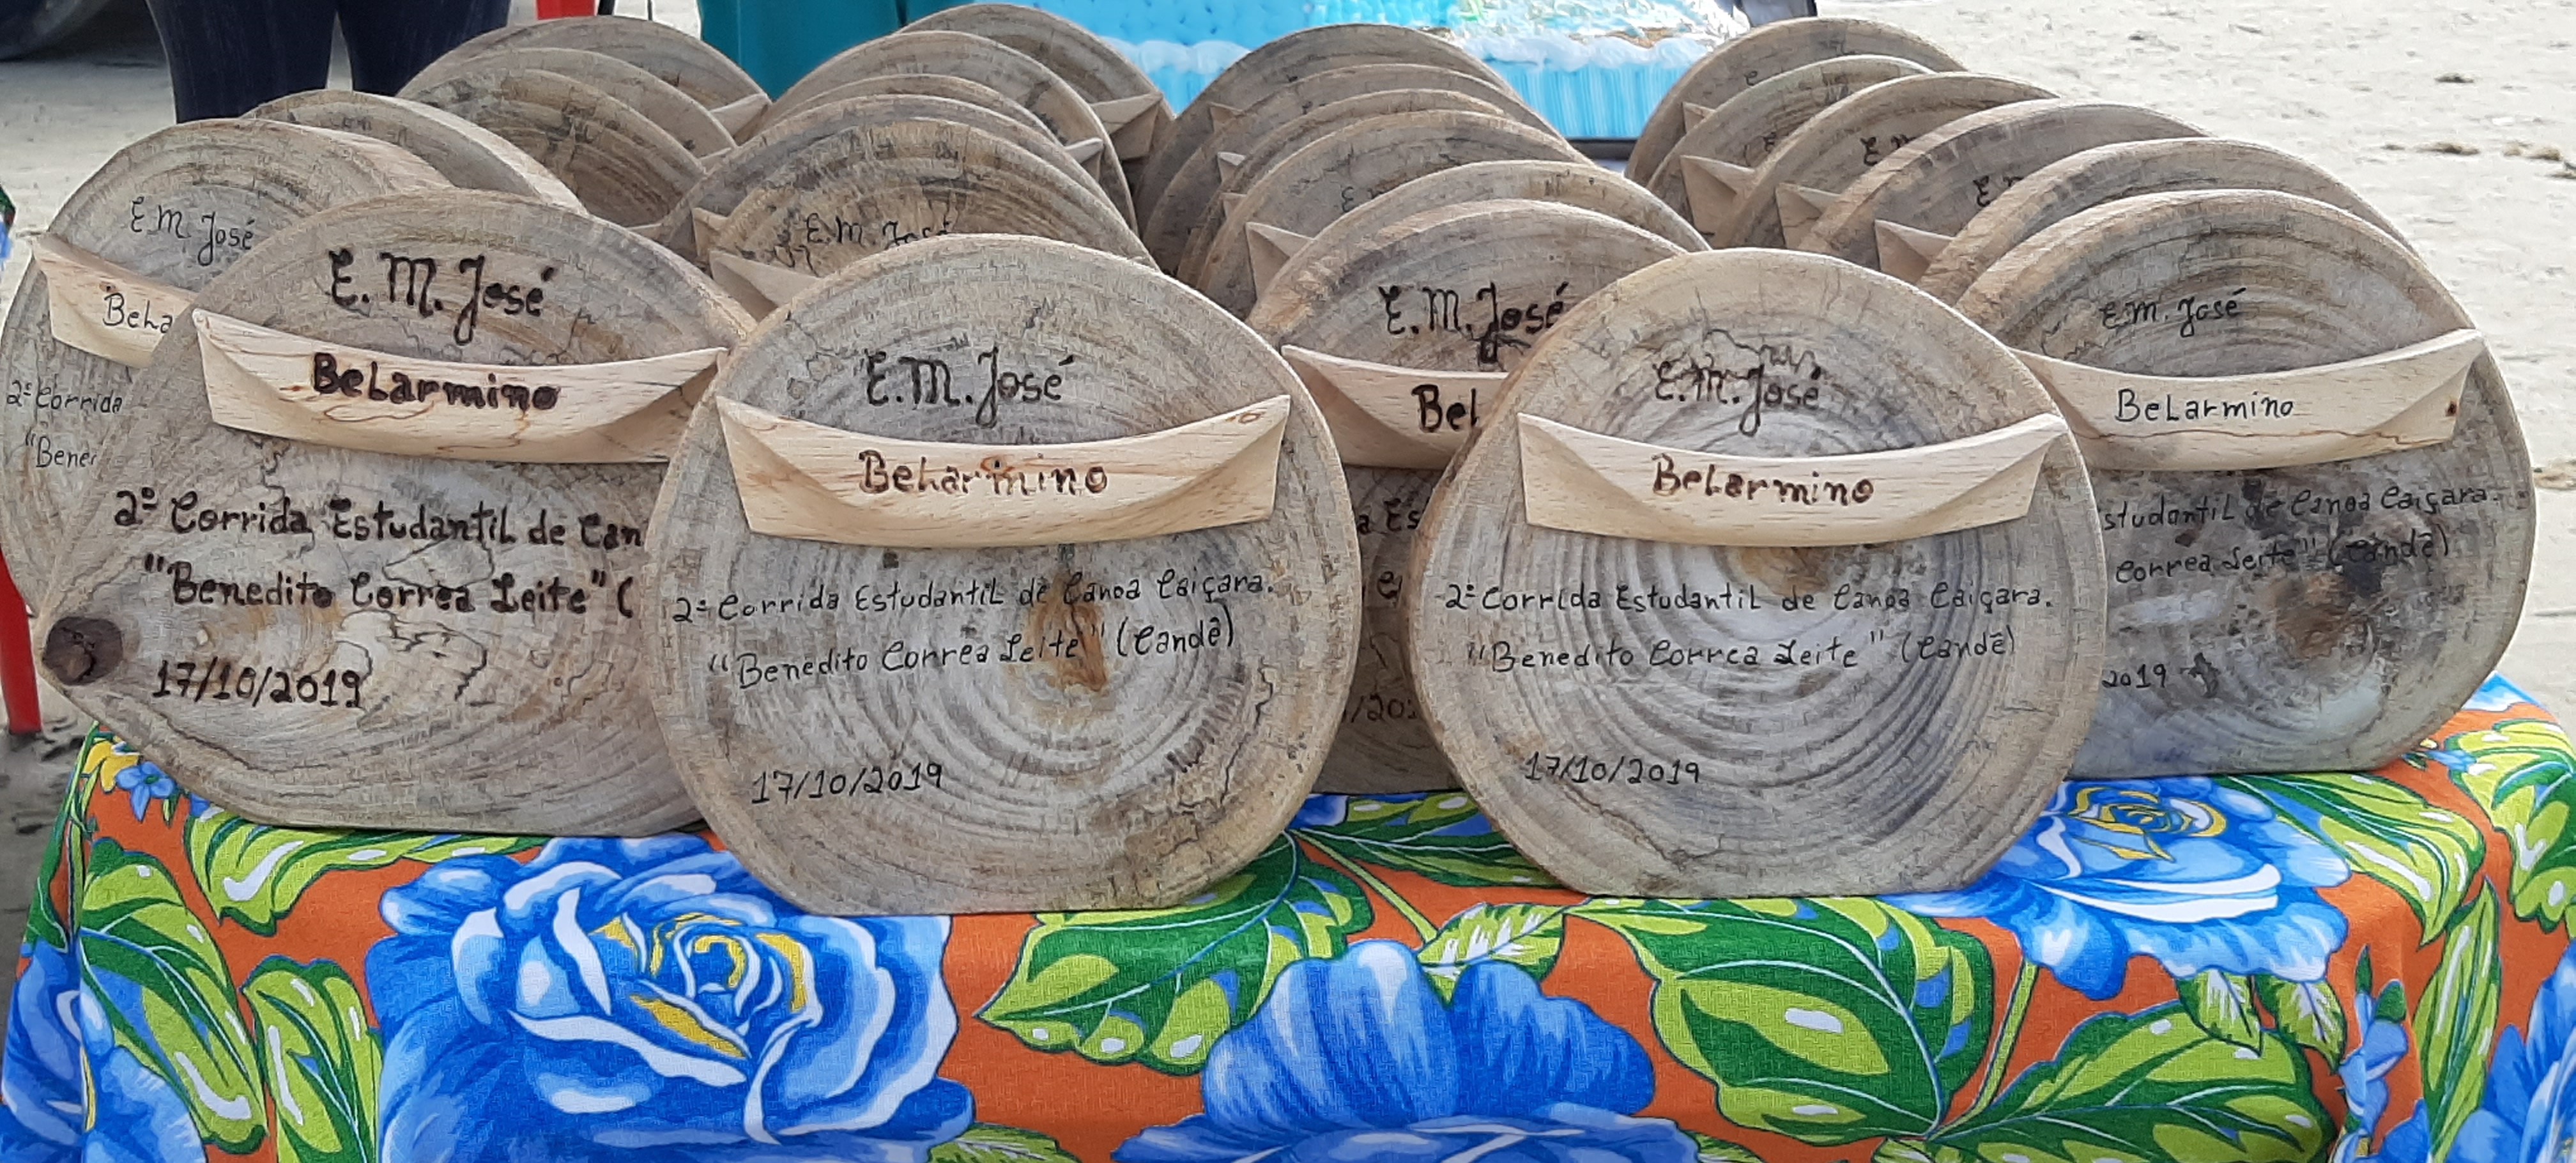 E. M. José
BeLarmino
2ª Corrida EstudantiL de Can
"Benedito Correa Leite" (
17/10/2019
E. M. José
BeLarmino
2ª Corrida EstudantiL de Canoa Caiçara.
"Benedito Correa Leite" (Candê)
17/10/2019
E. M. José
BeLarmino
2ª Corrida EstudantiL de Canoa Caiçara.
"Benedito Correa Leite" (Candê)
17/10/2019
E. M. José
BeLarmino
studantiL de Canoa Caiçara.
Correa Leite" (Candê)
2019
E. M. José
BeLa
2ª Corrida
"Bene
E. M. José
E. M. José
BeL
a Es
/201